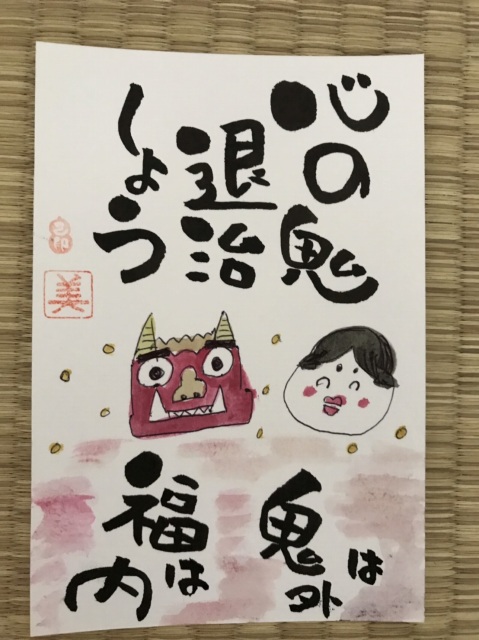 心の鬼
退治
しょう
鬼は外
福は内
美